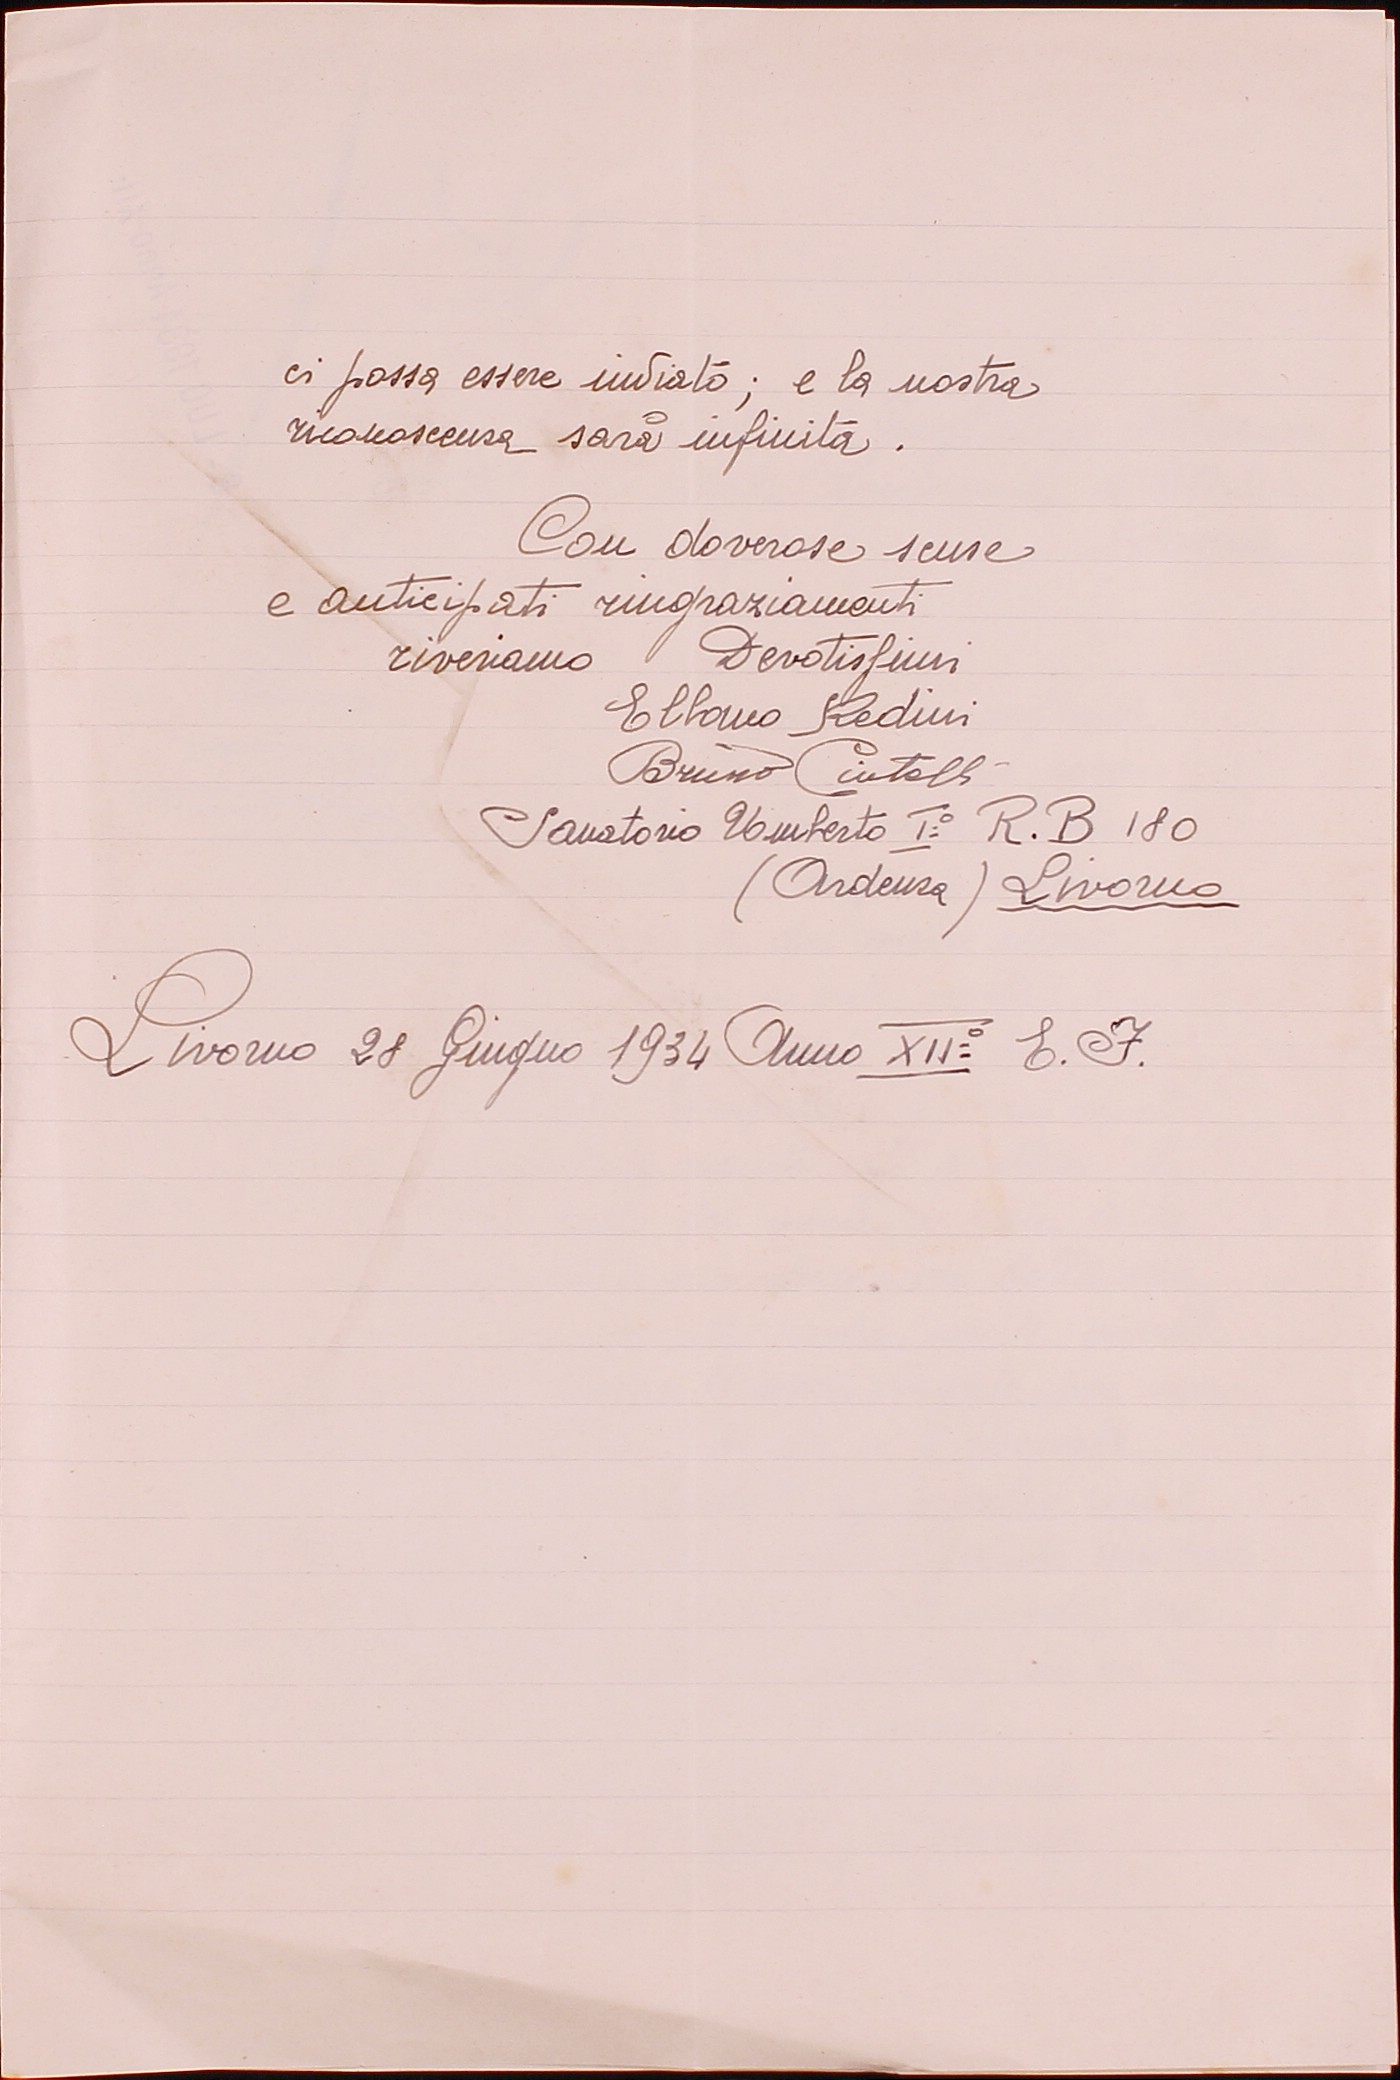 ci possa essere inviato; e la nostra
riconoscenza sarà infinita.
Con doverose scuse
e anticipati ringraziamenti
riveriamo Devotissimi
Elbano Redini
Bruno
Sanatorio Umberto Iº R.B 180
(Ardenza) Livorno
Livorno 28 Giugno 1934 Anno XIIº E. F.